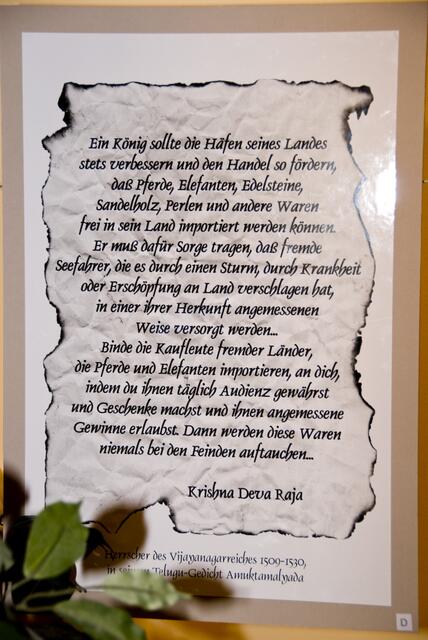 Ein König sollte die Häfen seines Landes
stets verbessern und den Handel so fördern,
daß Pferde, Elefanten, Edelsteine,
Sandelholz, Perlen und andere Waren
frei in sein Land importiert werden können.
Er muß dafür Sorge tragen, daß fremde
Seefahrer, die es durch einen Sturm, durch Krankheit
oder Erschöpfung an Land verschlagen hat,
in einer ihrer Herkunft angemessenen
Weise versorgt werden...
Binde die Kaufleute fremder Länder,
die Pferde und Elefanten importieren, an dich,
indem du ihnen täglich Audienz gewährst
und Geschenke machst und ihnen angemessene
Gewinne erlaubst. Dann werden diese Waren
niemals bei den Feinden auftauchen...
Krishna Deva Raja
Herrscher des Vijayanagarreiches 1509-1530,
in seinem Telugu-Gedicht Amuktamalyada
D